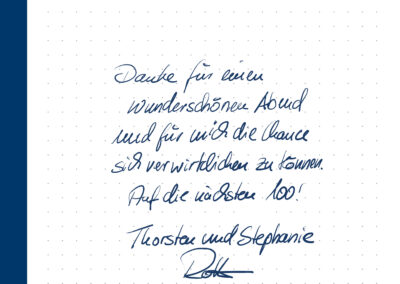 Danke für einen
wunderschönen Abend
und für mich die Chance
sich verwirklichen zu können.
Auf die nächsten 100!
Thorsten und Stephanie